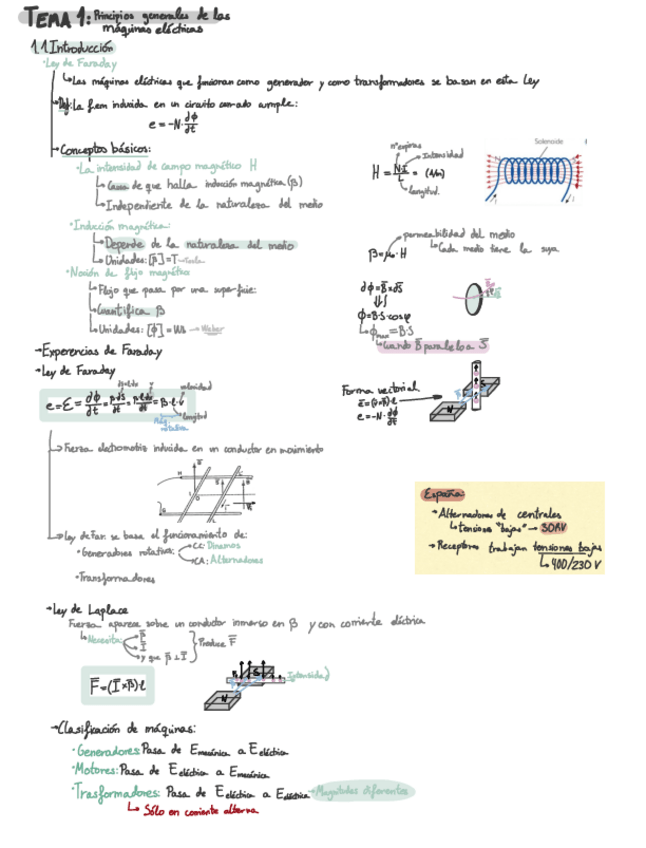 TEMA 1: Principios generales de las
máquinas eléctricas
1.1. Introducción
· Ley de Faraday
↳ Las máquinas eléctricas que funcionan como generador y como transformadores se basan en esta ley
→ Def: La fem inducida en un circuito cerrado cumple:
e = -N · dϕ/dt
→ Conceptos básicos:
· La intensidad de campo magnético H
↳ Causa de que halla inducción magnética (β)
↳ Independiente de la naturaleza del medio
nº espiras
Intensidad
H = N·I/L = (A/m)
longitud.
Solenoide
· Inducción magnética:
↳ Depende de la naturaleza del medio
↳ Unidades: [β] = T → Tesla
permeabilidad del medio
↳ Cada medio tiene la suya
β = μ · H
· Noción de flujo magnético
↳ Flujo que pasa por una superficie:
↳ Cuantifica β
↳ Unidades: [ϕ] = Wb → Weber
dϕ = B̄ · ds̄
ϕ = B·S·cosφ
↳ ϕmax = B·S
↳ Cuando B̄ paralelo a S̄
→ Experencias de Faraday
→ Ley de Faraday
velocidad
e = Ɛ = dϕ/dt = β·ds/dt = β·l·dx/dt = β·l·v
longitud
Máq. rotativa
Forma vectorial
e = -N · dϕ/dt
N
S
→ Fuerza electromotriz inducida en un conductor en movimiento
→ Ley de Far. se basa el funcionamiento de:
· Generadores rotativos:
CC: Dinamos
CA: Alternadores
· Transformadores
España:
→ Alternadores de centrales
↳ tensiones "bajas" →
→ Receptores trabajan tensiones bajas
↳ 400/230 V
→ Ley de Laplace
Fuerza aparece sobre un conductor inmerso en β y con corriente eléctrica
↳ Necesita:
β̄
Ī
y que β̄ ⊥ Ī
Produce F̄
F̄ = (Ī × β̄) · l
Intensidad
N
S
→ Clasificación de máquinas:
· Generadores: Pasa de Emecánica a Eeléctrica
· Motores: Pasa de Eeléctrica a Emecánica
· Trasformadores: Pasa de Eeléctrica a Eeléctrica → Magnitudes diferentes
↳ Sólo en corriente alterna